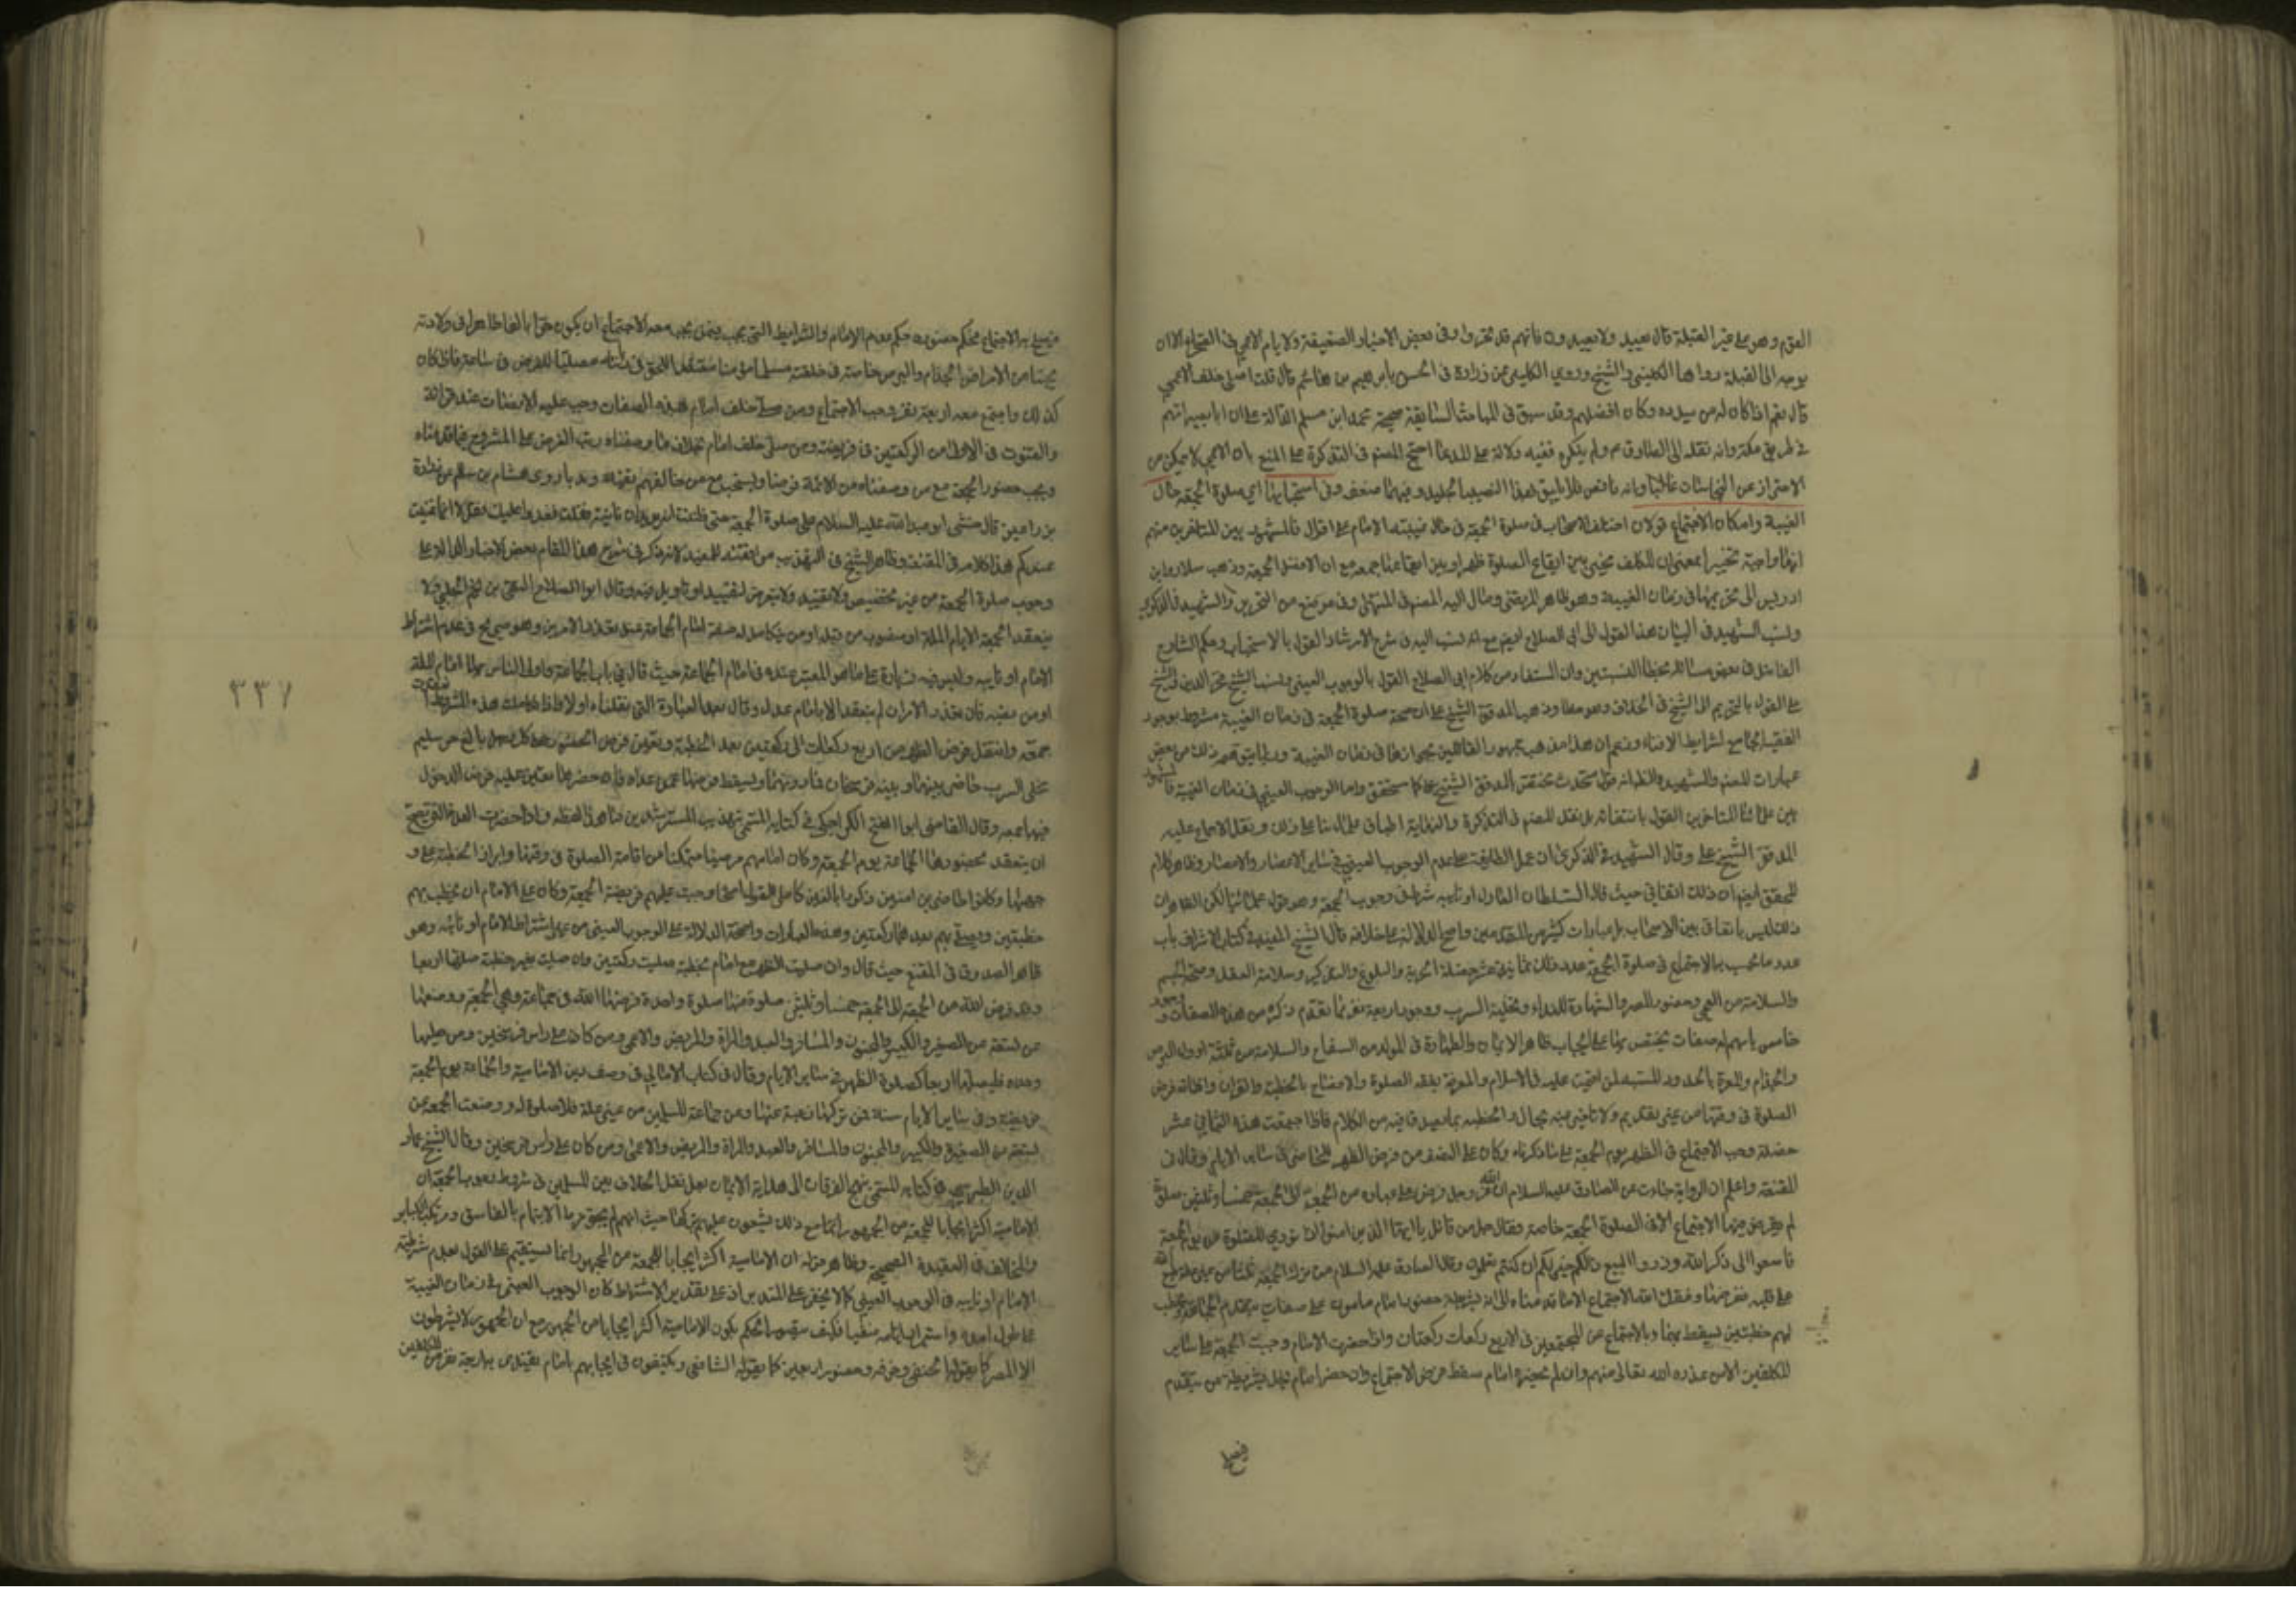 القوم وهو على غير القبلة قال يعيد ولا يعيدون فانهم قد تحروا وفى بعض الاخبار الضعيفة ولا يام الاعمى فى الصحراء الا ان
يوجه الى القبلة رواها الكلينى والشيخ وروى الكلينى عن زرارة فى الحسن بابرهيم بن هاشم قال قلت اصلى خلف الاعمى
قال نعم اذا كان له من يسدده وكان افضلهم وقد سبق فى المباحث السابقة صحيحة محمد ابن مسلم الدالة على ان ابا بصير امهم
فى طريق مكة وانه نقله الى الصادق م ولم ينكره ففيه دلالة على المدعا احتج المصنف فى التذكرة على المنع بان الاعمى لا يمكن من
الاحتراز عن النجاسات غالبا وانه ناقص فلا يليق لهذا المنصب الجليل وفيهما ضعف وفى استحبابها اى صلوة الجمعة حال
الغيبة وامكان الاجتماع قولان اختلف الاصحاب فى صلوة الجمعة فى حال غيبة الامام على اقوال فالمشهور بين المتاخرين منهم
انها واجبة تخييرا بمعنى ان المكلف مخير بين ايقاع الصلوة ظهرا وبين ايقاعها جمعة مع ان الافضل الجمعة وذهب سلار وابن
ادريس الى تحريمها فى زمان الغيبة وهو ظاهر المرتضى ومال اليه المصنف فى المنتهى وفى موضع من التحرير والشهيد فى الذكرى
ونسب الشهيد فى البيان هذا القول الى ابى الصلاح ايضا مع انه نسب اليه فى شرح الارشاد القول بالاستحباب وحكم الشارح
الفاضل فى بعض رسائله بخطأ النسبتين وان المستفاد من كلام ابى الصلاح القول بالوجوب العينى ونسب الشيخ فخر الدين
على القول بالتحريم الى الشيخ فى الخلاف وهو خطا وذهب المدقق الشيخ على ان صحة صلوة الجمعة فى زمان الغيبة مشروط بوجود
الفقيه الجامع لشرايط الافتاء وزعم ان هذا مذهب جمهور القائلين بجوازها فى زمان الغيبة وربما يتوهم ذلك من بعض
عبارات المصنف والشهيد والظاهر انه قول محدث المدقق الشيخ على كما ستحقق واما الوجوب العينى فى زمان الغيبة فالمشهور
بين علمائنا المتاخرين القول بانتفائه بل نقل المصنف فى التذكرة والنهاية اطباق علمائنا على ذلك ونقل الاجماع عليه
المدقق الشيخ على وقال الشهيد فى الذكرى ان عمل الطايفة على عدم الوجوب العينى فى ساير الاعصار والامصار وظاهر كلام
المحقق ايضا ان ذلك اتفاقى حيث قال السلطان العادل او نايبه شرط فى وجوب الجمعة وهو قول علمائنا لكن الظاهر ان
ذلك ليس باتفاق بين الاصحاب بل عبارات كثير من المتقدمين واضح الدلالة على خلافه قال الشيخ المفيد فى كتاب الاشراف باب
عدد ما يجب به الاجتماع فى صلوة الجمعة عدد ذلك ثمانى عشر خصلة الحرية والبلوغ والتذكير وسلامة العقل وصحة الجسم
والسلامة من العمى وحضور المصر والشهادة للنداء وتخلية السرب ووجود اربعة نفر بما تقدم ذكره من هذه الصفات ووجود
خامس يامهم له صفات يختص بها على الايجاب ظاهر الايمان والطهارة فى المولد من السفاح والسلامة من ثلثة ادواء البرص
والجذام والمعرة بالحدود المشينة لمن اقيمت عليه فى الاسلام والمعرفة بفقه الصلوة والافصاح بالخطبة والقران واقامة فرض
الصلوة فى وقتها من غير تقديم ولا تاخير عنه بحال والخطبة بما يصدق فيه من الكلام فاذا اجتمعت هذه الثمانى عشر
خصلة وجب الاجتماع فى الظهر يوم الجمعة على ما ذكرناه وكان على النصف من فرض الظهر للحاضر فى ساير الايام وقال فى
المقنعة واعلم ان الرواية جاءت عن الصادق عليه السلام ان الله عز وجل فرض على عباده من الجمعة الى الجمعة خمسا وثلثين صلوة
لم يفرض فيها الاجتماع الا فى الصلوة الجمعة خاصة فقال جل من قائل يا ايها الذين امنوا اذا نودى للصلوة من يوم الجمعة
فاسعوا الى ذكر الله وذروا البيع ذلكم خير لكم ان كنتم تعلمون وقال الصادق عليه السلام من ترك الجمعة ثلثا من غير علة طبع الله
على قلبه ففرضها وفقك الله الاجتماع الا ما قدمناه الا انه بشريطة حضور امام مامون على صفات يتقدم الجماعة ويخطب
لهم خطبتين يسقط بهما وبالاجتماع عن المجتمعين فى الاربع ركعات ركعتان واذا حضر الامام وجبت الجمعة على ساير
المكلفين الا من عذره الله تعالى منهم وان لم يحضره امام سقط فرض الاجتماع وان حضر امام يخل بشريطة من يتقدم
فيصلح
فيصلح به الاجتماع فحكم حضوره حكم عدم الامام والشرايط التى تجب فيمن يجب معه الاجتماع ان يكون حرا بالغا طاهرا فى ولادته
مجنبا من الامراض الجذام والبرص خاصة فى خلقته مسلما مؤمنا معتقدا للحق فى ديانته مصليا للفرض فى ساعته فاذا كان
كذلك واجتمع معه اربعة نفر وجب الاجتماع ومن صلى خلف امام بهذه الصفات وجب عليه الانصات عند قرائة
والقنوت فى الاولى من الركعتين فى فريضته ومن صلى خلف امام بخلاف ما وصفناه رتب الفرض على المشروح فيما قدمناه
ويجب حضور الجمعة مع من وصفناه من الائمة فرضا ويستحب مع من خالفهم تقية وندبا روى هشام بن سالم عن زرارة
بن اعين قال حثنى ابو عبد الله عليه السلام على صلوة الجمعة حتى ظننت انه يريد ان ناتيه فقلت نغدوا عليك فقال لا انما عنيت
عندكم هذا كلامه فى المقنعة وظاهر الشيخ فى التهذيب موافقته للمفيد لانه ذكر فى شرح هذا المقام بعض الاخبار الدالة على
وجوب صلوة الجمعة من غير تخصيص ولا تقييد ولا يتعرض لتقييد او تاويل فيه وقال ابو الصلاح التقى بن نجم الحلبى ولا
ينعقد الجمعة الا بامام الملة او منصوب من قبله او من يتكامل له صفة امام الجماعة عند تعذر الامرين وهو صريح فى عدم اشتراط
الامام او نايبه
حيث قال فى باب الجماعة واولى الناس بها امام الملة
او من نصبه فان تعذر الامران لم ينعقد الا بامام عدل وقال بعد العبارة التى نقلناها اولا واذا تكاملت هذه الشروط انعقدت
جمعة وانتقل فرض الظهر من اربع ركعات الى ركعتين بعد الخطبة وتعين فرض الحضور على كل رجل بالغ حر سليم
مخلى السرب حاضر بينهما وبينه فرسخان فما دونهما ويسقط فرضها عمن عداه فان حضرها تعين عليه فرض الدخول
فيها جمعة وقال القاضى ابو الفتح الكراجكى فى كتابه المسمى بتهذيب المسترشدين واذا حضرت العدة التى يصح
ان ينعقد بحضورها الجماعة يوم الجمعة وكان امامهم مرضيا متمكنا من اقامة الصلوة فى وقتها وايراد الخطبة على
وجهها وكانوا حاضرين امنين ذكورا بالغين كاملى العقول اصحاء وجبت عليهم فريضة الجمعة وكان على الامام ان يخطب بهم
خطبتين ويصلى بهم بعدهما ركعتين وهذه العبارات واضحة الدلالة على الوجوب العينى من غير اشتراط الامام او نائبه وهو
ظاهر الصدوق فى المقنع حيث قال وان صليت الظهر مع امام بخطبة صليت ركعتين وان صليت بغير خطبة صليتها اربعا
وقد فرض الله من الجمعة الى الجمعة خمسا وثلثين صلوة منها صلوة واحدة فرضها الله فى جماعة وهى الجمعة ووضعها
عن تسعة عن الصغير والكبير والمجنون والمسافر والعبد والمراة والمريض والاعمى ومن كان على راس فرسخين ومن صليها
وحده فليصلها اربعا كصلوة الظهر فى ساير الايام وقال فى كتاب الامالى فى وصف دين الامامية والجماعة يوم الجمعة
فريضة وفى ساير الايام سنة فمن تركها رغبة عنها وعن جماعة المسلمين من غير علة فلا صلوة له ووضعت الجمعة عن
تسعة عن الصغير والكبير والمجنون والمسافر والعبد والمراة والمريض والاعمى ومن كان على راس فرسخين وقال الشيخ عماد
الدين الطبرسى فى كتابه المسمى بنهج الفرقان الى هداية الايمان بعد نقل الخلاف بين المسلمين فى شروط وجوب الجمعة ان
الامامية اكثر ايجابا للجمعة من الجمهور ومع ذلك يشنعون عليهم بتركها حيث انهم لم يجوزوا الايتمام بالفاسق ومرتكب الكباير
والمخالف فى العقيدة الصحيحة وظاهر قوله ان الامامية اكثر ايجابا للجمعة من الجمهور انما يستقيم على القول بعدم شرطية
الامام او نايبه فى الوجوب العينى كما لا يخفى على المتدبر اذ على تقدير الاشتراط كان الوجوب العينى فى زمان الغيبة
منفيا فكيف يتصور الحكم بكون الامامية اكثر ايجابا من الجمهور مع ان الجمهور لا يشترطون
الا المصر كما يقوله الحنفى وحضور اربعين كما يقوله الشافعى ويكتفون فى ايجابهم بامام يقتدى به اربعة نفر من المكلفين
٣٣٧